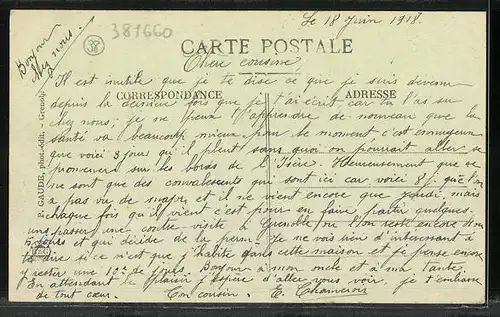 Le 18 Juin 1918.
Bonjour
chez nous.
38
381660
CARTE POSTALE
Chère cousine,
CORRESPONDANCE
ADRESSE
P. GAUDE, phot.-édit. - Grenoble
Il est inutile que je te dise ce que je suis devenu
depuis la dernière fois que je t'ai écrit car tu l'as su
chez nous; je ne peux t'apprendre de nouveau que la
santé va beaucoup mieux pour le moment c'est ennuyeux
que voici 3 jours qu'il pleut sans quoi on pourrait aller se
promener sur les bords de l'Isère. Heureusement que ce
ne sont que des convalescents qui sont ici car voici 8 j. que l'on
a pas vu de major et il ne vient encore que jeudi, mais
chaque fois qu'il vient c'est pour en faire partir quelques-
uns passer une contre visite à Grenoble où l'on reste encore
jours et qui décide de la perm. Je ne vois rien d'intéressant à
te dire si ce n'est que j'habite dans cette maison et je pense encore
y rester une 10e de jours. Bonjour à mon oncle et à ma tante
En attendant le plaisir j'espère d'aller vous voir, je t'embrasse
de tout cœur. Ton cousin. E.